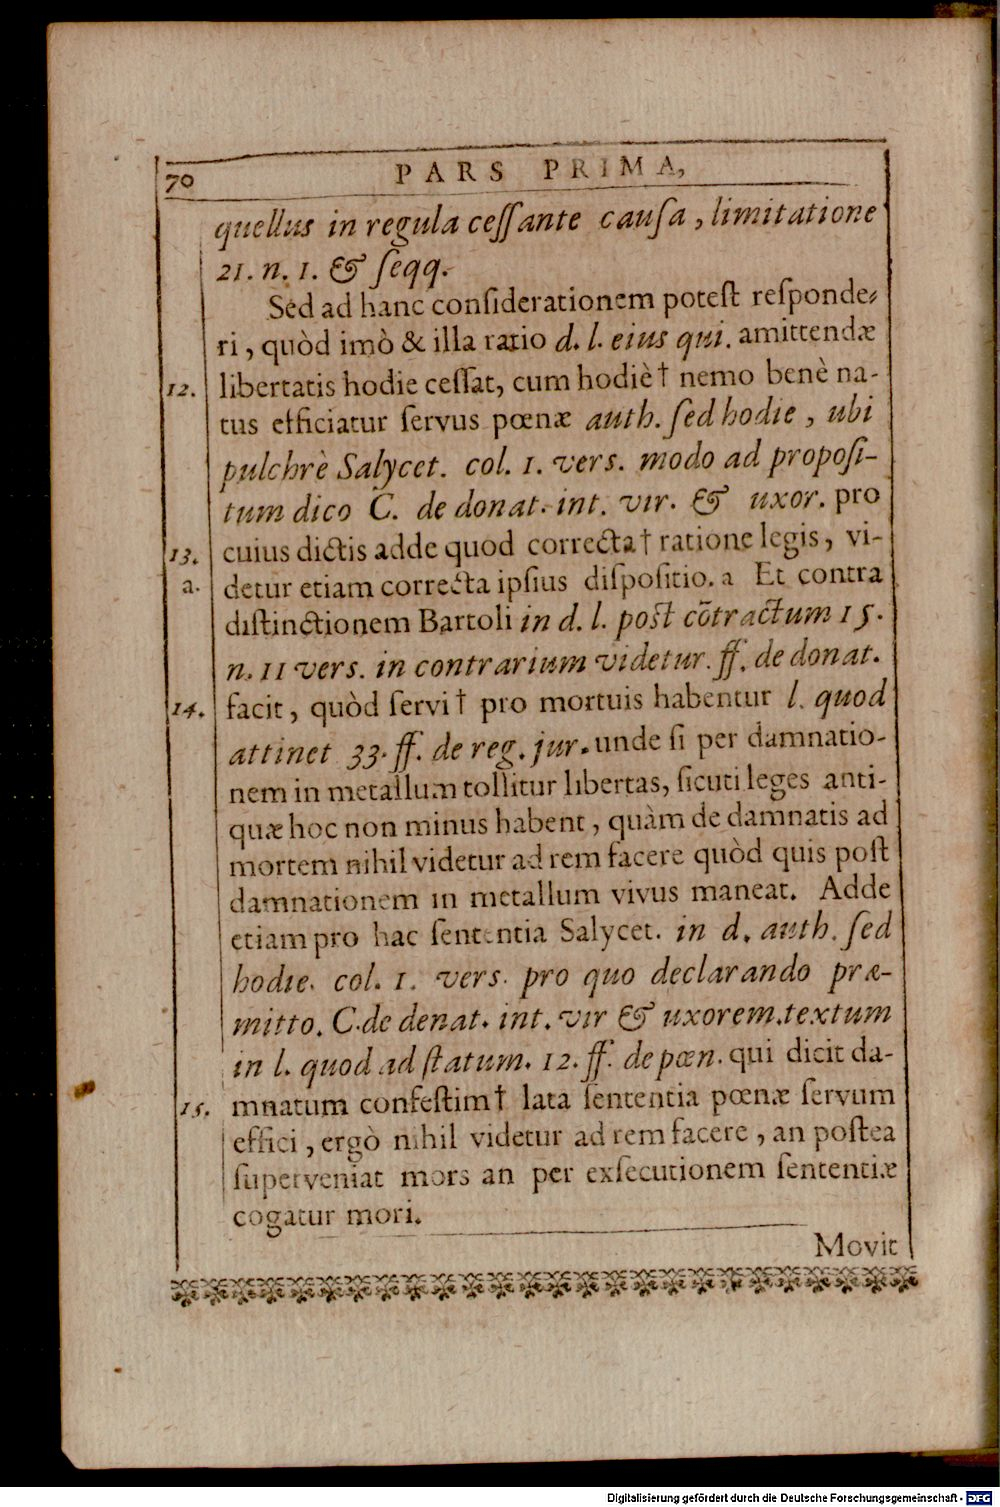 70
PARS PRIMA,
quellus in regula ceſſante cauſa, limitatione
21. n. 1. & ſeqq.
Sed ad hanc conſiderationem poteſt reſponde-
ri, quòd imò & illa ratio d. l. eius qui. amittendæ
12. libertatis hodie ceſſat, cum hodiè† nemo benè na-
tus efficiatur ſervus pœnæ auth. ſed hodie, ubi
pulchrè Salycet. col. 1. vers. modo ad propoſi-
tum dico C. de donat. int. vir. & uxor. pro
13. cuius dictis adde quod correcta† ratione legis, vi-
a. detur etiam correcta ipſius diſpoſitio. a Et contra
diſtinctionem Bartoli in d. l. poſt cõtractum 15.
n. 11 vers. in contrarium videtur. ff. de donat.
14. facit, quòd ſervi† pro mortuis habentur l. quod
attinet 33. ff. de reg. jur. unde ſi per damnatio-
nem in metallum tollitur libertas, ſicuti leges anti-
quæ hoc non minus habent, quàm de damnatis ad
mortem nihil videtur ad rem facere quòd quis poſt
damnationem in metallum vivus maneat. Adde
etiam pro hac ſententia Salycet. in d. auth. ſed
hodie. col. 1. vers. pro quo declarando præ-
mitto. C. de denat. int. vir & uxorem. textum
in l. quod ad ſtatum. 12. ff. de pœn. qui dicit da-
15. mnatum confeſtim† lata ſententia pœnæ ſervum
effici, ergò nihil videtur ad rem facere, an poſtea
ſuperveniat mors an per exſecutionem ſententiæ
cogatur mori.
Movit
Digitalisierung gefördert durch die Deutsche Forschungsgemeinschaft - DFG